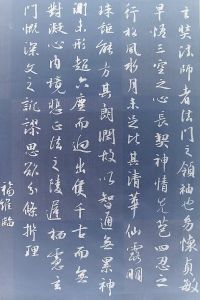 玄奘法師者法門之領袖也幼懷貞敏
早悟三空之心長契神情先苞四忍之
行松風水月未足比其清華仙露明
珠詎能方其朗潤故以智通無累神
測未形超六塵而迥出隻千古而無
對凝心內境悲正法之陵遲栖慮玄
門慨深文之訛謬思欲分條析理
臨